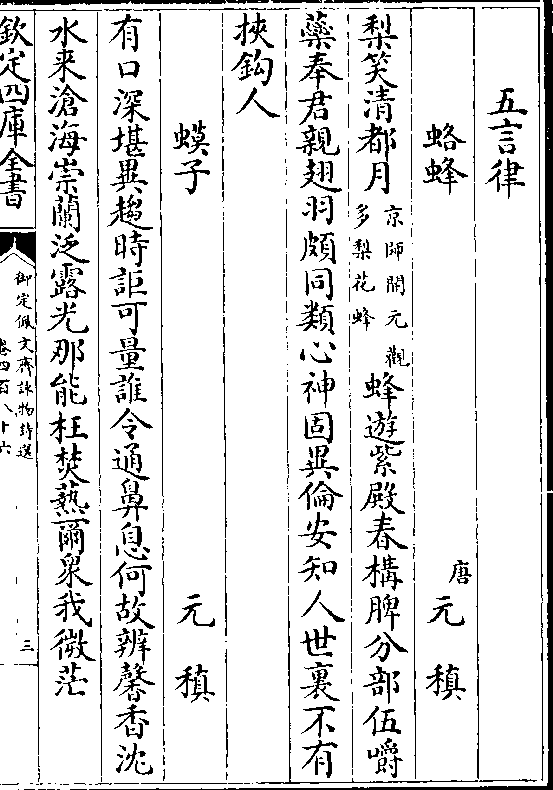 五言律
蛒蜂
唐 元稹
梨笑清都月 京師開元觀多梨花蜂 蜂遊紫殿春構脾分部伍嚼
蘂奉君親翅羽頗同類心神固異倫安知人世裏不有
挾鈎人
蟆子
元稹
有口深堪異趨時詎可量誰令通鼻息何故辨馨香沈
水来滄海崇蘭泛露光那能枉焚爇爾衆我微茫
欽定四庫全書
御定佩文齋詠物詩選
卷四百八十六
三